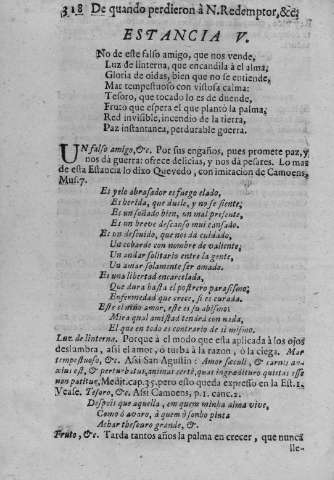 318 De quando perdieron à N. Redemptor, &c.
ESTANCIA V.
No de este falso amigo, que nos vende,
Luz de linterna, que encandila à el alma,
Gloria de oidas, bien que no se entiende,
Mar tempestuoso con vistosa calma:
Tesoro, que tocado lo es de duende,
Fruto que espera el que plantò la palma,
Red invisible, incendio de la tierra,
Paz instantanea, perdurable guerra.
UN falso amigo, &c. Por sus engaños, pues promete paz, y
nos dà guerra: ofrece delicias, y nos dà pesares. Lo mas
de esta Estancia lo dixo Quevedo, con imitacion de Camoens,
Mus. 7.
Es yelo abrasador es fuego elado,
Es herida, que duele, y no se siente;
Es un soñado bien, un mal presente,
Es un breve descanso mui cansado.
Es un descuido, que nos dà cuidado,
Un cobarde con nombre de valiente;
Un andar solitario entre la gente,
Un amar solamente ser amado.
Es una libertad encarcelada,
Que dura hasta el postrero parasismo;
Enfermedad que crece, si es curada.
Este es el niño amor, este es su abismo:
Mira qual amistad tendrà con nada,
El que en todo es contrario de sì mismo.
Luz de linterna. Porque à el modo que esta aplicada à los ojos
deslumbra, assi el amor, ò turba à la razon, ò la ciega. Mar
tempestuoso, &c. Assi San Agustin: Amor sæculi, & carnis an-
xius est, & perturbatus, animas certè, quas ingreditur quietas esse
non patitur, Medit. cap. 35. pero esto queda expresso en la Est. 1.
Vease. Tesoro, &c. Assi Camoens, p. 1. canc. 2.
Despois que aquella, em quem minha alma vive,
Como ò avaro, à quem ò sonho pinta
Achar thesouro grande, &c.
Fruto, &c. Tarda tantos años la palma en crecer, que nunca
lle-